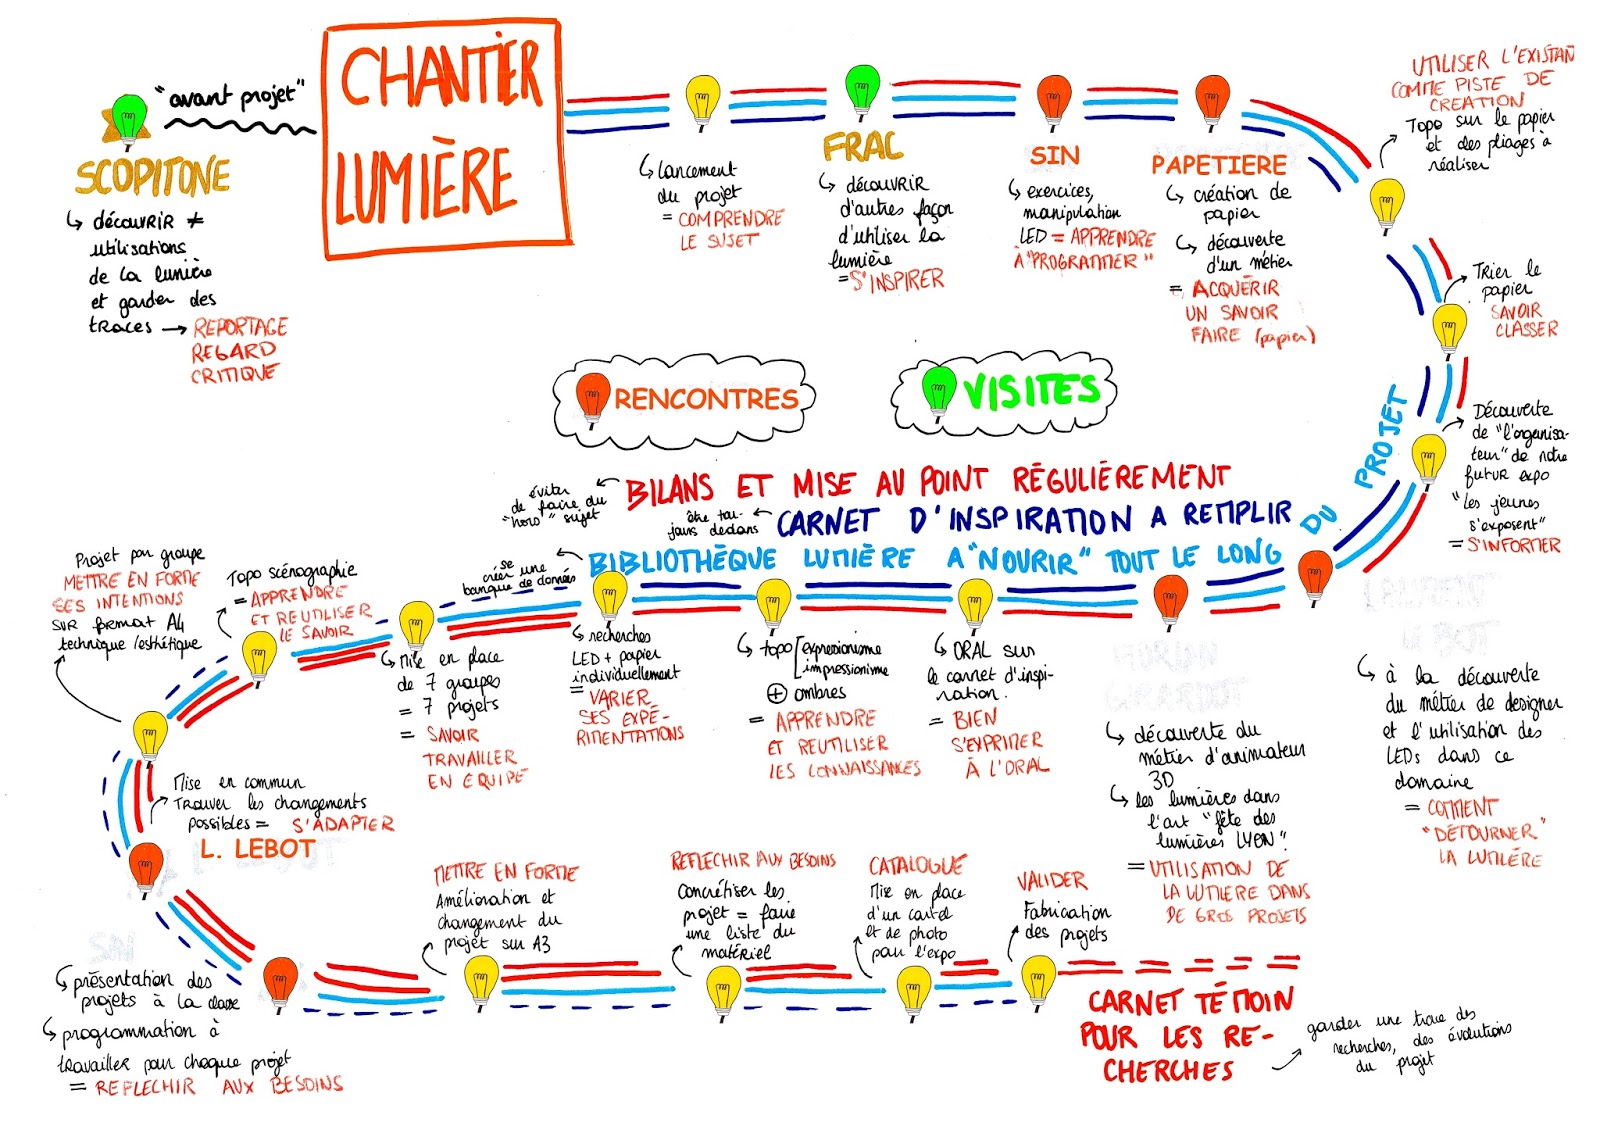 CHANTIER
LUMIÈRE
"avant projet"
SCOPITONE
↳ découvrir ≠
utilisations
de la lumière
et garder des
traces → REPORTAGE
REGARD
CRITIQUE
↳ lancement
du projet
= COMPRENDRE
LE SUJET
FRAC
↳ découvrir
d'autres façon
d'utiliser la
lumière
= S'INSPIRER
SIN
↳ exercices,
manipulation
LED = APPRENDRE
À "PROGRAMMER"
PAPETIERE
↳ création de
papier
↳ découverte
d'un métier
= ACQUÉRIR
UN SAVOIR
FAIRE (papier)
UTILISER L'EXISTAN
COMME PISTE DE
CREATION
Topo sur le papier
et des pliages à
réaliser
Trier le
papier
SAVOIR
CLASSER
Découverte
de "l'organisa-
teur" de notre
futur expo
"les jeunes
s'exposent"
= S'INFORMER
RENCONTRES
VISITES
éviter
de faire du
"hors" sujet
BILANS ET MISE AU POINT RÉGULIÈREMENT
être tou-
jours dedans
CARNET D'INSPIRATION A REMPLIR
se
créer une
banque de données
BIBLIOTHÈQUE LUMIÈRE A "NOURIR" TOUT LE LONG
DU PROJET
LAURENT
LE BOT
↳ à la découverte
du métier de designer
et l'utilisation des
LEDs dans ce
domaine
= COMMENT
"DÉTOURNER"
LA LUMIÈRE
FLORIAN
GIRARDOT
↳ découverte du
métier d'animateur
3D
↳ les lumières dans
l'art "fête des
lumières LYON".
= UTILISATION DE
LA LUMIERE DANS
DE GROS PROJETS
↳ ORAL sur
le carnet d'inspi-
ration.
= BIEN
S'EXPRIMER
À L'ORAL
↳ topo [expressionisme
impressionisme
⊕ ombres
= APPRENDRE
ET REUTILISER
LES CONNAISSANCES
↳ recherches
LED + papier
individuellement
= VARIER
SES EXPÉ-
RIMENTATIONS
↳ Mise en place
de 7 groupes
= 7 projets
= SAVOIR
TRAVAILLER
EN EQUIPE
Topo scénographie
= APPRENDRE
ET REUTILISER
LE SAVOIR
Projet par groupe
METTRE EN FORME
SES INTENTIONS
SUR format A4
technique/esthétique
Mise en commun
Trouver les changements
possibles = S'ADAPTER
L. LEBOT
SIN
↳ présentation des
projets à la classe
↳ programmation à
travailler pour chaque projet
= REFLECHIR AUX BESOINS
METTRE EN FORME
Amélioration et
changement du
projet sur A3
REFLECHIR AUX BESOINS
Concrétiser les
projet = faire
une liste du
matériel
CATALOGUE
Mise en place
d'un cartel
et de photo
pour l'expo
VALIDER
Fabrication
des projets
CARNET TÉMOIN
POUR LES RE-
CHERCHES
garder une trace des
recherches, des évolutions
du projet